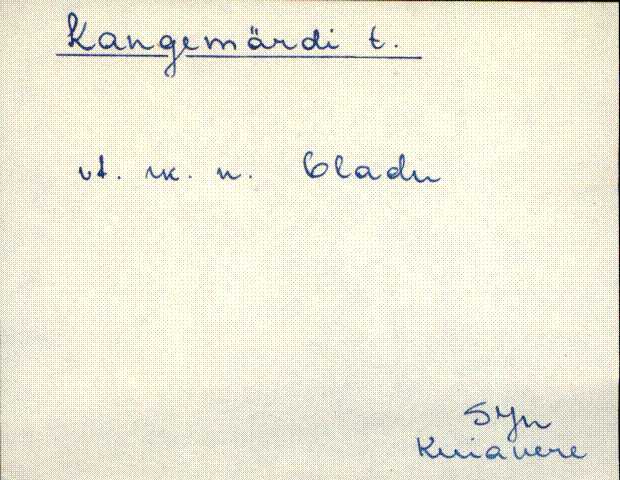 Kangemärdi t.
vt. rk. n. Oladu
SJn
Kuiavere